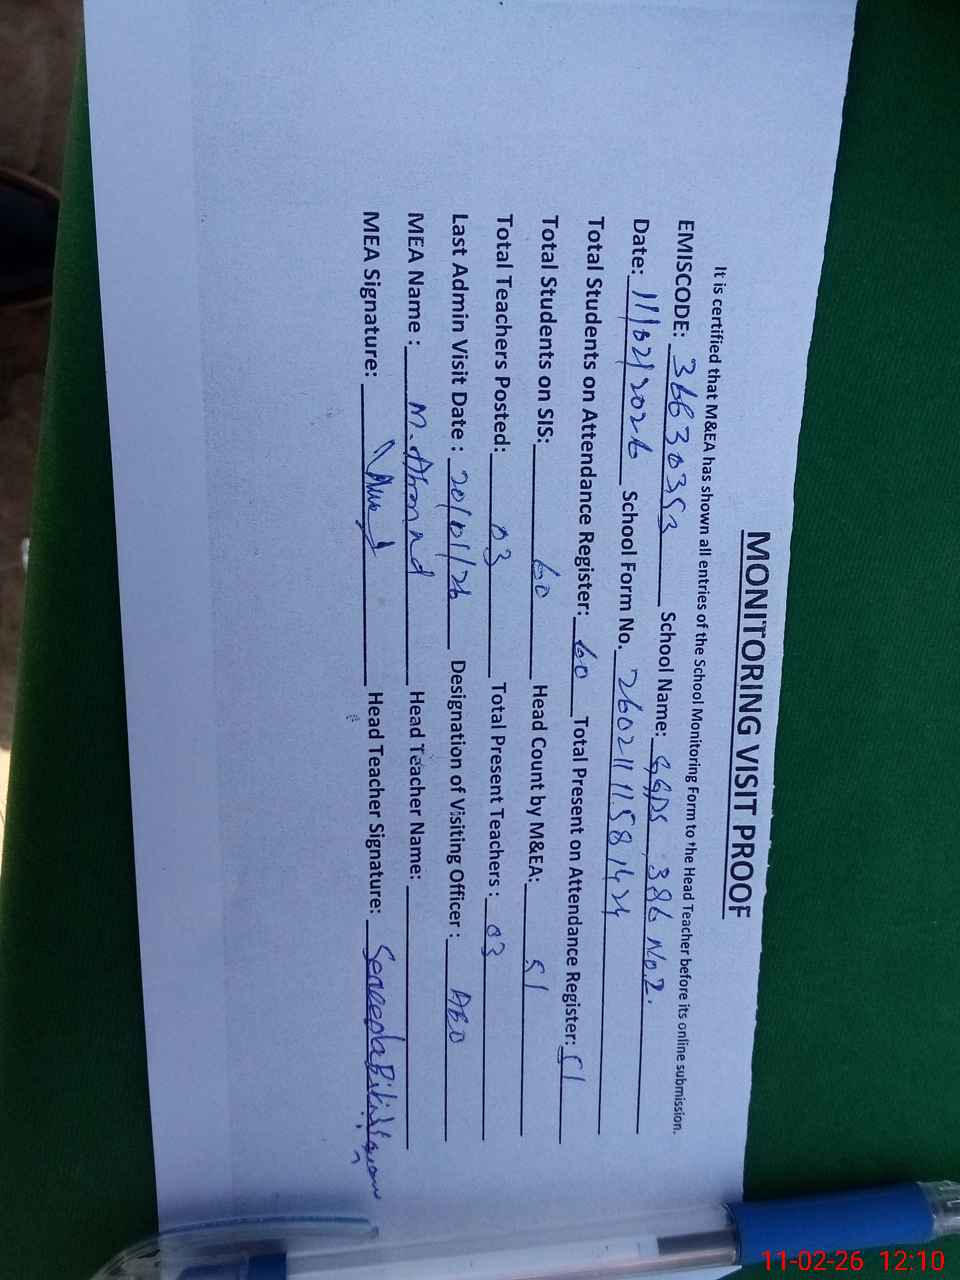 MONITORING VISIT PROOF
It is certified that M&EA has shown all entries of the School Monitoring Form to the Head Teacher before its online submission.
EMISCODE: 36630353 School Name: GGPS 386 No.2.
Date: 11/02/2026 School Form No. 2602111581424
Total Students on Attendance Register: 60 Total Present on Attendance Register: 51
Total Students on SIS: 60 Head Count by M&EA: 51
Total Teachers Posted: 03 Total Present Teachers : 03
Last Admin Visit Date : 20/01/26 Designation of Visiting Officer : AEO
MEA Name : M. Ahmad Head Teacher Name:
MEA Signature: Head Teacher Signature:
11-02-26 12:10